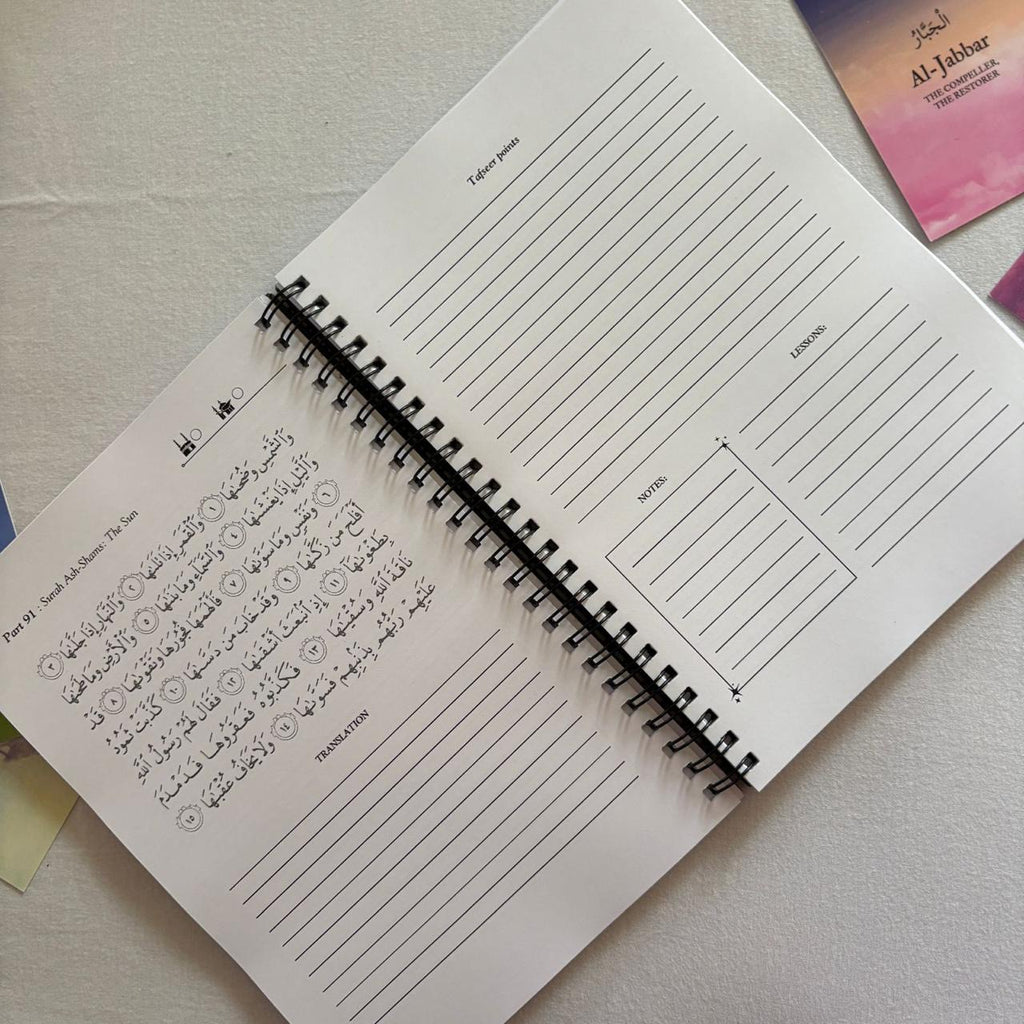 Part 91 : Surah Ash-Shams: The Sun
وَٱلشَّمْسِ وَضُحَىٰهَا ١ وَٱلْقَمَرِ إِذَا تَلَىٰهَا ٢ وَٱلنَّهَارِ إِذَا جَلَّىٰهَا ٣
وَٱلَّيْلِ إِذَا يَغْشَىٰهَا ٤ وَٱلسَّمَآءِ وَمَا بَنَىٰهَا ٥ وَٱلْأَرْضِ وَمَا طَحَىٰهَا
٦ وَنَفْسٍ وَمَا سَوَّىٰهَا ٧ فَأَلْهَمَهَا فُجُورَهَا وَتَقْوَىٰهَا ٨ قَدْ
أَفْلَحَ مَن زَكَّىٰهَا ٩ وَقَدْ خَابَ مَن دَسَّىٰهَا ١٠ كَذَّبَتْ ثَمُودُ
بِطَغْوَىٰهَآ ١١ إِذِ ٱنۢبَعَثَ أَشْقَىٰهَا ١٢ فَقَالَ لَهُمْ رَسُولُ ٱللَّهِ
نَاقَةَ ٱللَّهِ وَسُقْيَٰهَا ١٣ فَكَذَّبُوهُ فَعَقَرُوهَا فَدَمْدَمَ
عَلَيْهِمْ رَبُّهُم بِذَنۢبِهِمْ فَسَوَّىٰهَا ١٤ وَلَا يَخَافُ عُقْبَٰهَا ١٥
TRANSLATION
Tafseer points
LESSONS:
NOTES:
ٱلْجَبَّارُ
Al-Jabbar
THE COMPELLER,
THE RESTORER